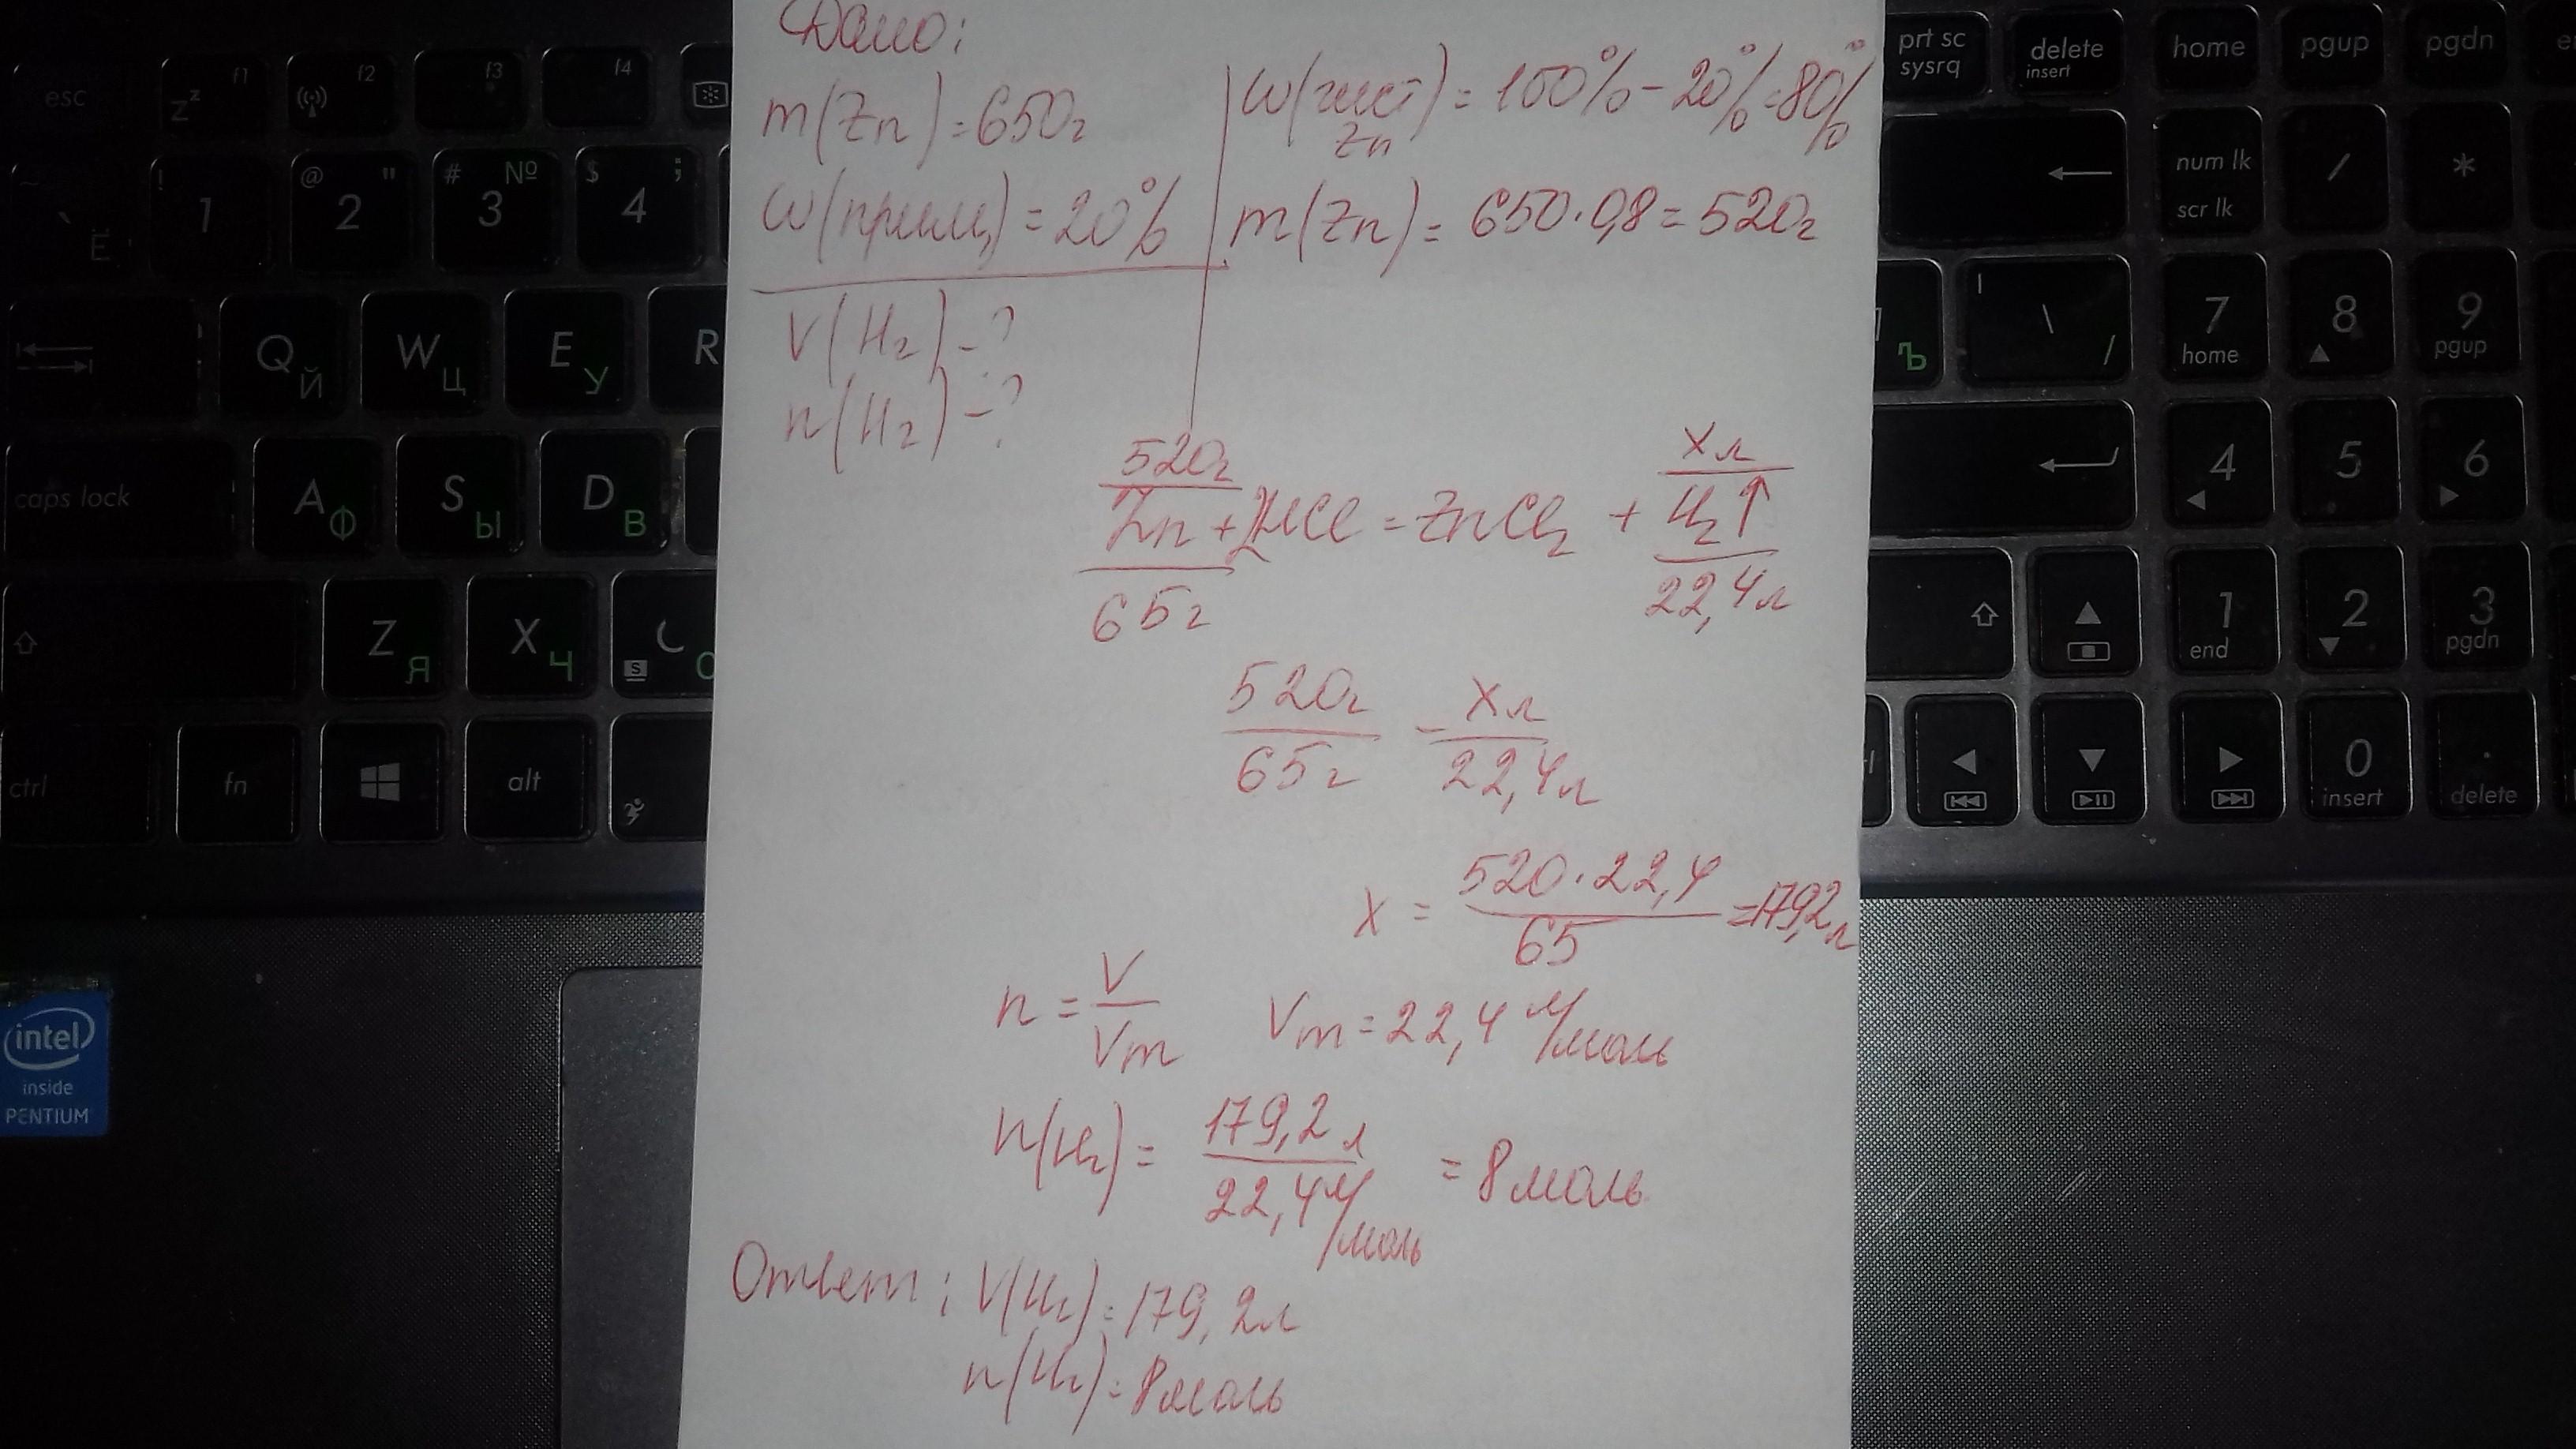 Дано:
m(Zn)=650г
ω(прим.)=20%
V(H₂)-?
n(H₂)-?
ω(чист Zn)=100%-20%=80%
m(Zn)=650·0,8=520г
520г xл
Zn+2HCl=ZnCl₂ + H₂↑
65г 22,4л
520г/65г = xл/22,4л
x = 520·22,4/65 =179,2л
n = V/Vm Vm=22,4 л/моль
n(H₂)= 179,2л/22,4л/моль = 8моль
Ответ: V(H₂)=179,2л
n(H₂)=8моль
esc
f1
zᶻ
f2
f3
f4
prt sc
sysrq
delete
insert
home
pgup
pgdn
~
` Ё
! 1
@ " 2
# № 3
$ ; 4
num lk
scr lk
/
*
Q Й
W Ц
E У
R
Ъ
| \ /
7 home
8
9 pgup
caps lock
A Ф
S Ы
D В
4
5
6
Z Я
X Ч
C С
1 end
2
3 pgdn
ctrl
fn
alt
0 insert
. delete
intel
inside
PENTIUM